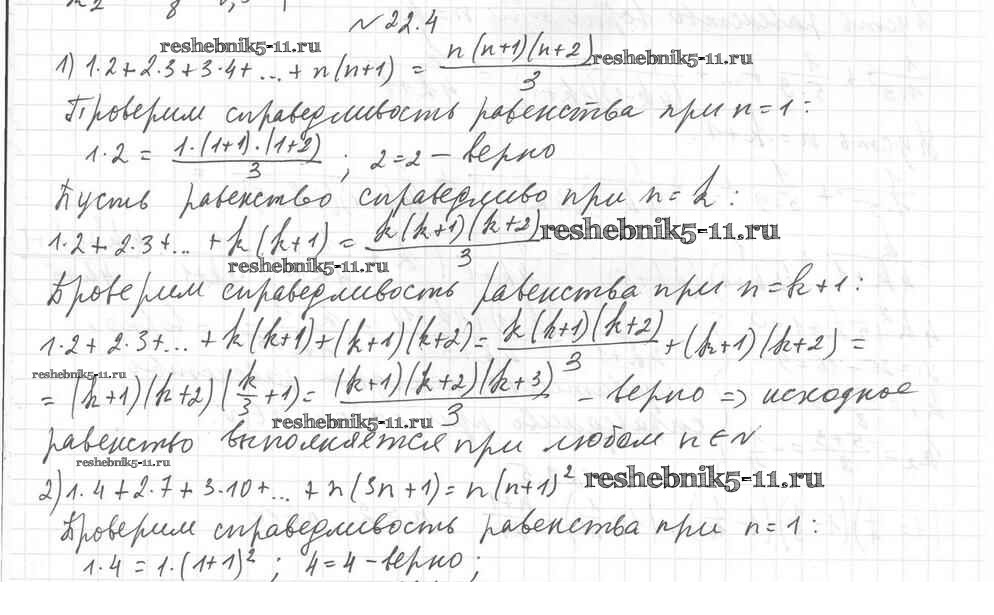 №22.4
reshebnik5-11.ru
1) 1·2+2·3+3·4+...+n(n+1) = n(n+1)(n+2)/3 reshebnik5-11.ru
Проверим справедливость равенства при n=1:
1·2 = 1·(1+1)·(1+2)/3 ; 2=2 – верно
Пусть равенство справедливо при n=k:
1·2+2·3+...+k(k+1) = k(k+1)(k+2)/3 reshebnik5-11.ru
reshebnik5-11.ru
Проверим справедливость равенства при n=k+1:
1·2+2·3+...+k(k+1)+(k+1)(k+2) = k(k+1)(k+2)/3 +(k+1)(k+2) =
reshebnik5-11.ru
= (k+1)(k+2)(k/3+1) = (k+1)(k+2)(k+3)/3 – верно => исходное
reshebnik5-11.ru
равенство выполняется при любом n∈N
reshebnik5-11.ru
2) 1·4+2·7+3·10+...+n(3n+1) = n(n+1)² reshebnik5-11.ru
Проверим справедливость равенства при n=1:
1·4=1·(1+1)² ; 4=4 – верно;